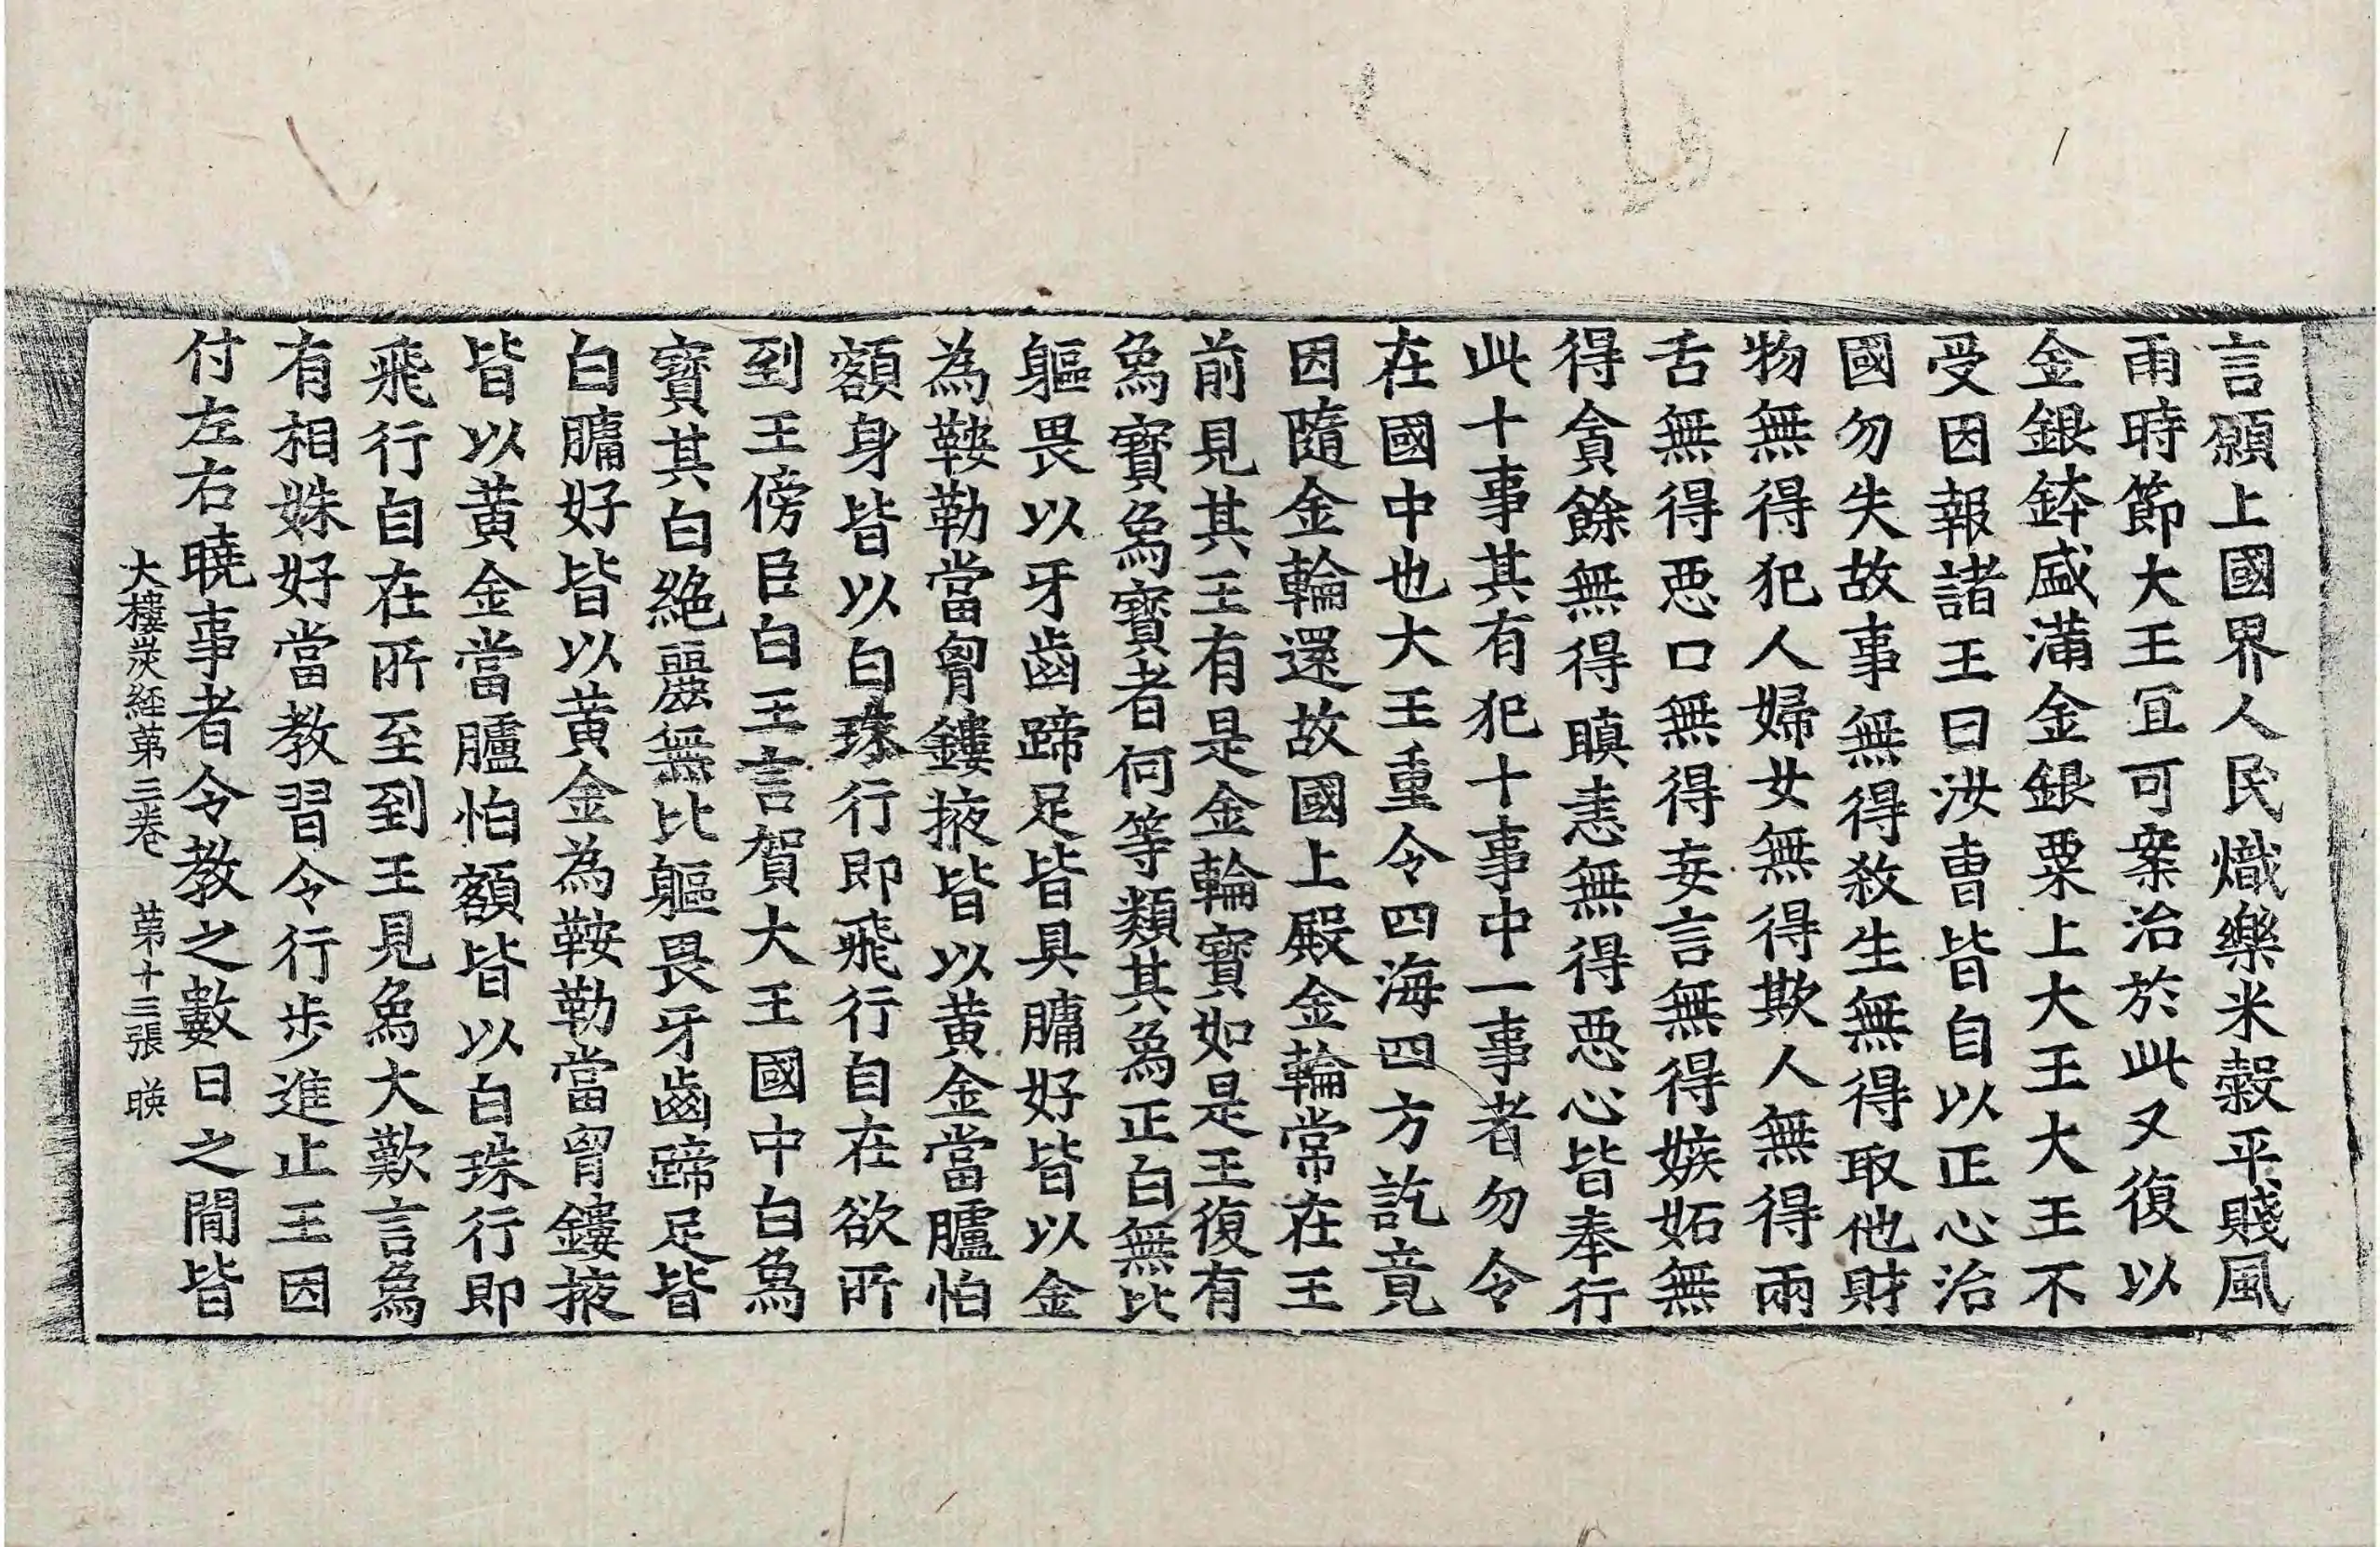 言願上國界人民熾樂米穀平賤風
雨時節大王宜可案治於此又復以
金銀鉢盛滿金銀粟上大王大王不
受因報諸王曰汝曹皆自以正心治
國勿失故事無得殺生無得取他財
物無得犯人婦女無得欺人無得兩
舌無得惡口無得妄言無得嫉妬無
得貪餘無得瞋恚無得惡心皆奉行
此十事其有犯十事中一事者勿令
在國中也大王重令四海四方訖竟
因隨金輪還故國上殿金輪常在王
前見其王有是金輪寶如是王復有
象寶象寶者何等類其象正白無比
軀畏以牙齒蹄足皆具牗好皆以金
為鞍勒當胷鏤掖皆以黃金當臚怕
額身皆以白珠行即飛行自在欲所
到王傍臣白王言賀大王國中白象
寶其白絕麗無比軀畏牙齒蹄足皆
白牗好皆以黃金為鞍勒當胷鏤掖
皆以黃金當臚怕額皆以白珠行即
飛行自在所至到王見象大歎言象
有相姝好當教習令行步進止王因
付左右曉事者令教之數日之閒皆
大樓炭經第三卷 第十三張 暎